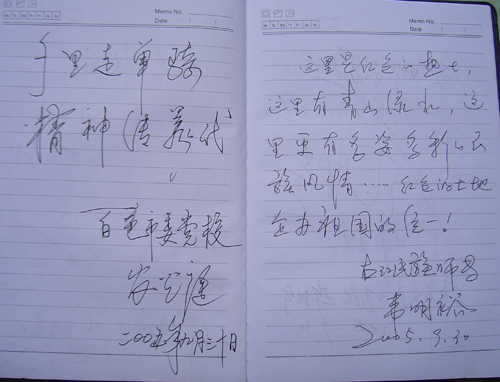 Memo No.
Date
千里走单骑
精神传万代
百色市委党校
二00五年九月三十日
Memo No.
Date
这里是红色的热土,
这里有青山绿水,这
里更有多姿多彩的民
族风情……红色的土地
祖国的
右江民族师专
韦明裕
2005.9.30